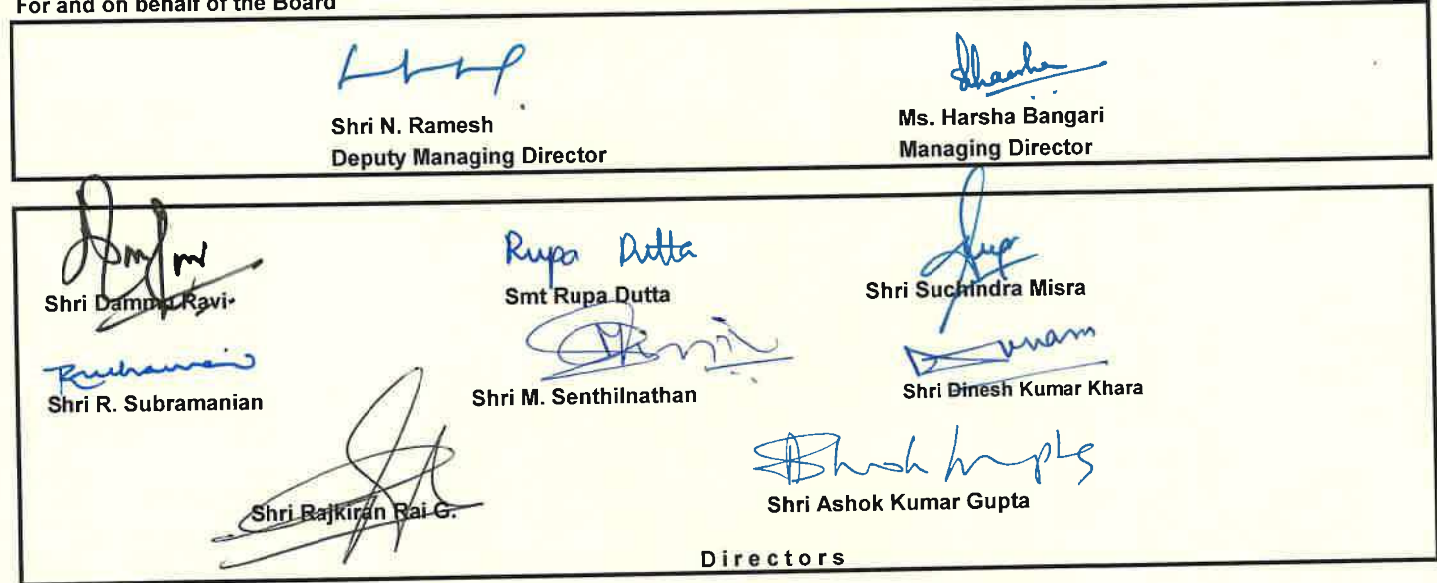 For and on behalf of the Board
Shri N. Ramesh
Deputy Managing Director
Ms. Harsha Bangari
Managing Director
Rupa Dutta
Shri Dammu Ravi
Smt Rupa Dutta
Shri Suchindra Misra
Shri R. Subramanian
Shri M. Senthilnathan
Shri Dinesh Kumar Khara
Shri Rajkiran Rai G.
Ashok Gupta
Shri Ashok Kumar Gupta
Directors